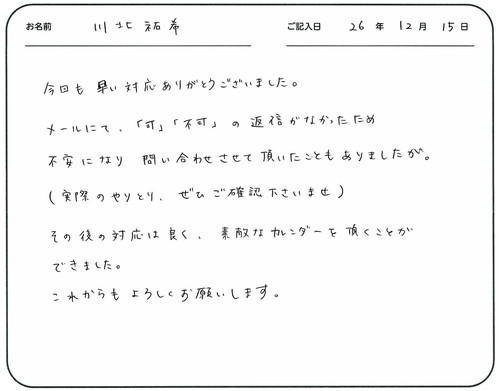 お名前 川北祐希 ご記入日 26年12月15日
今回も早い対応ありがとうございました。
メールにて、「可」「不可」の返信がなかったため
不安になり問い合わせさせて頂いたこともありましたが。
(実際のやりとり、ぜひご確認下さいませ)
その後の対応は良く、素敵なカレンダーを頂くことが
できました。
これからもよろしくお願いします。